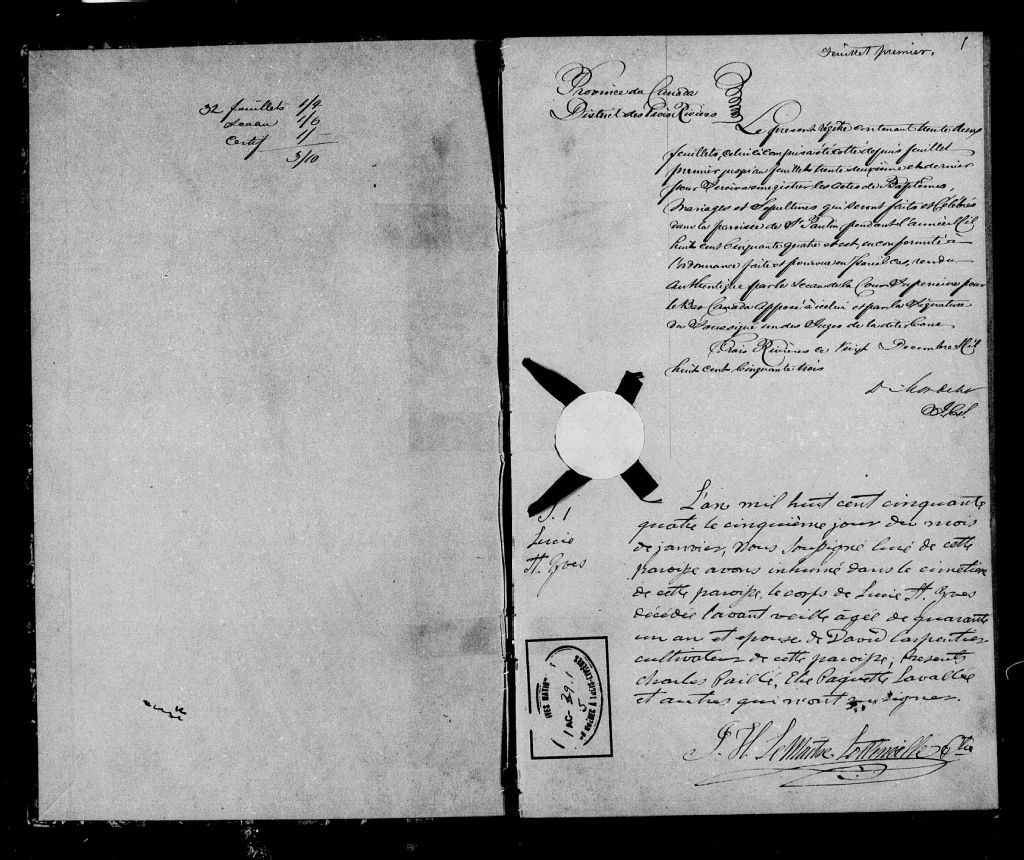 32 feuillets 1/4
Sceau 1/6
Certif 1/-
3/10
Feuillet premier.
1
Province du Canada
District des Trois Rivières
Le présent régistre contenant trente deux
feuillets, celui ci compris a été cotté depuis feuillet
premier jusqu'au feuillets trente deuxième et dernier
pour servir à enregistrer les actes de Baptêmes,
Mariages et Sépultures qui seront faits et célébrés
dans la paroisse de St Paulin pendant l'année Mil
huit cent cinquante quatre et est, en conformité à
l'ordonnance faite et pourvue en pareil cas, rendu
authentique par le Sceau de la Cour Supérieure pour
le Bas Canada apposé à icelui et par la Signature
du Soussigné un des Juges de la dite Cour
Trois Rivières ce vingt Decembre Mil
huit cent cinquante trois
D. Mondelet
J.C.S.
S. 1
Lucie
St. Yves
L'an mil huit cent cinquante
quatre le cinquième jour du mois
de janvier, Nous soussigné curé de cette
paroisse avons inhumé dans le cimetière
de cette paroisse, le corps de Lucie St. Yves
décédée l'avant veille agée de quarante
un an et epouse de David Carpentier
cultivateur de cette paroisse; Présents
Charles Paillé, Elie Paquette Lavallée
et autres qui n'ont signer.
J. H. Lemaitre Lottinville Ptre